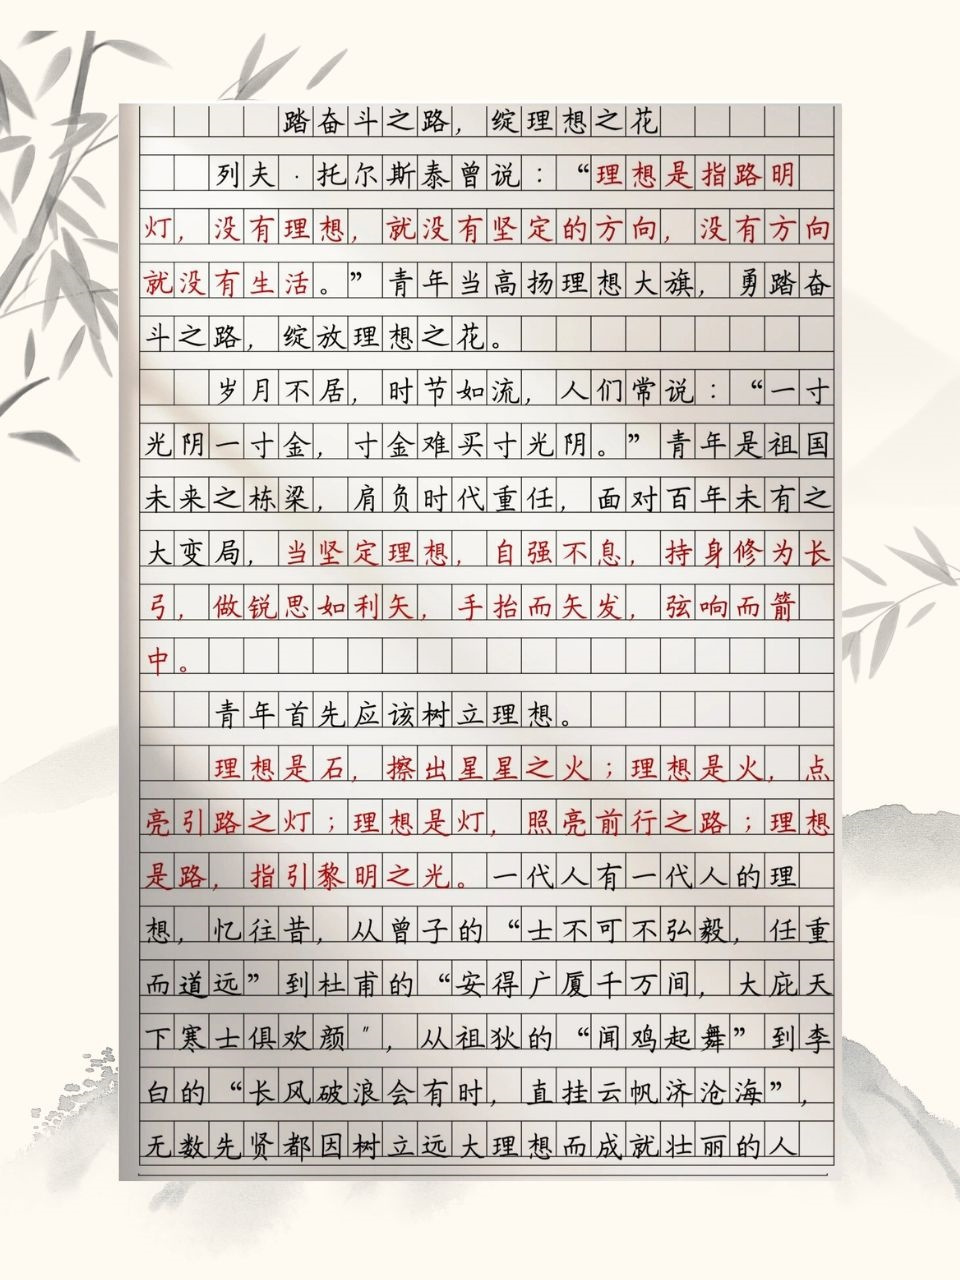 踏奋斗之路，绽理想之花
列夫·托尔斯泰曾说：“理想是指路明
灯，没有理想，就没有坚定的方向，没有方向
就没有生活。”青年当高扬理想大旗，勇踏奋
斗之路，绽放理想之花。
岁月不居，时节如流，人们常说：“一寸
光阴一寸金，寸金难买寸光阴。”青年是祖国
未来之栋梁，肩负时代重任，面对百年未有之
大变局，当坚定理想，自强不息，持身修为长
弓，做锐思如利矢，手抬而矢发，弦响而箭
中。
青年首先应该树立理想。
理想是石，擦出星星之火；理想是火，点
亮引路之灯；理想是灯，照亮前行之路；理想
是路，指引黎明之光。一代人有一代人的理
想，忆往昔，从曾子的“士不可不弘毅，任重
而道远”到杜甫的“安得广厦千万间，大庇天
下寒士俱欢颜"，从祖狄的“闻鸡起舞”到李
白的“长风破浪会有时，直挂云帆济沧海”，
无数先贤都因树立远大理想而成就壮丽的人